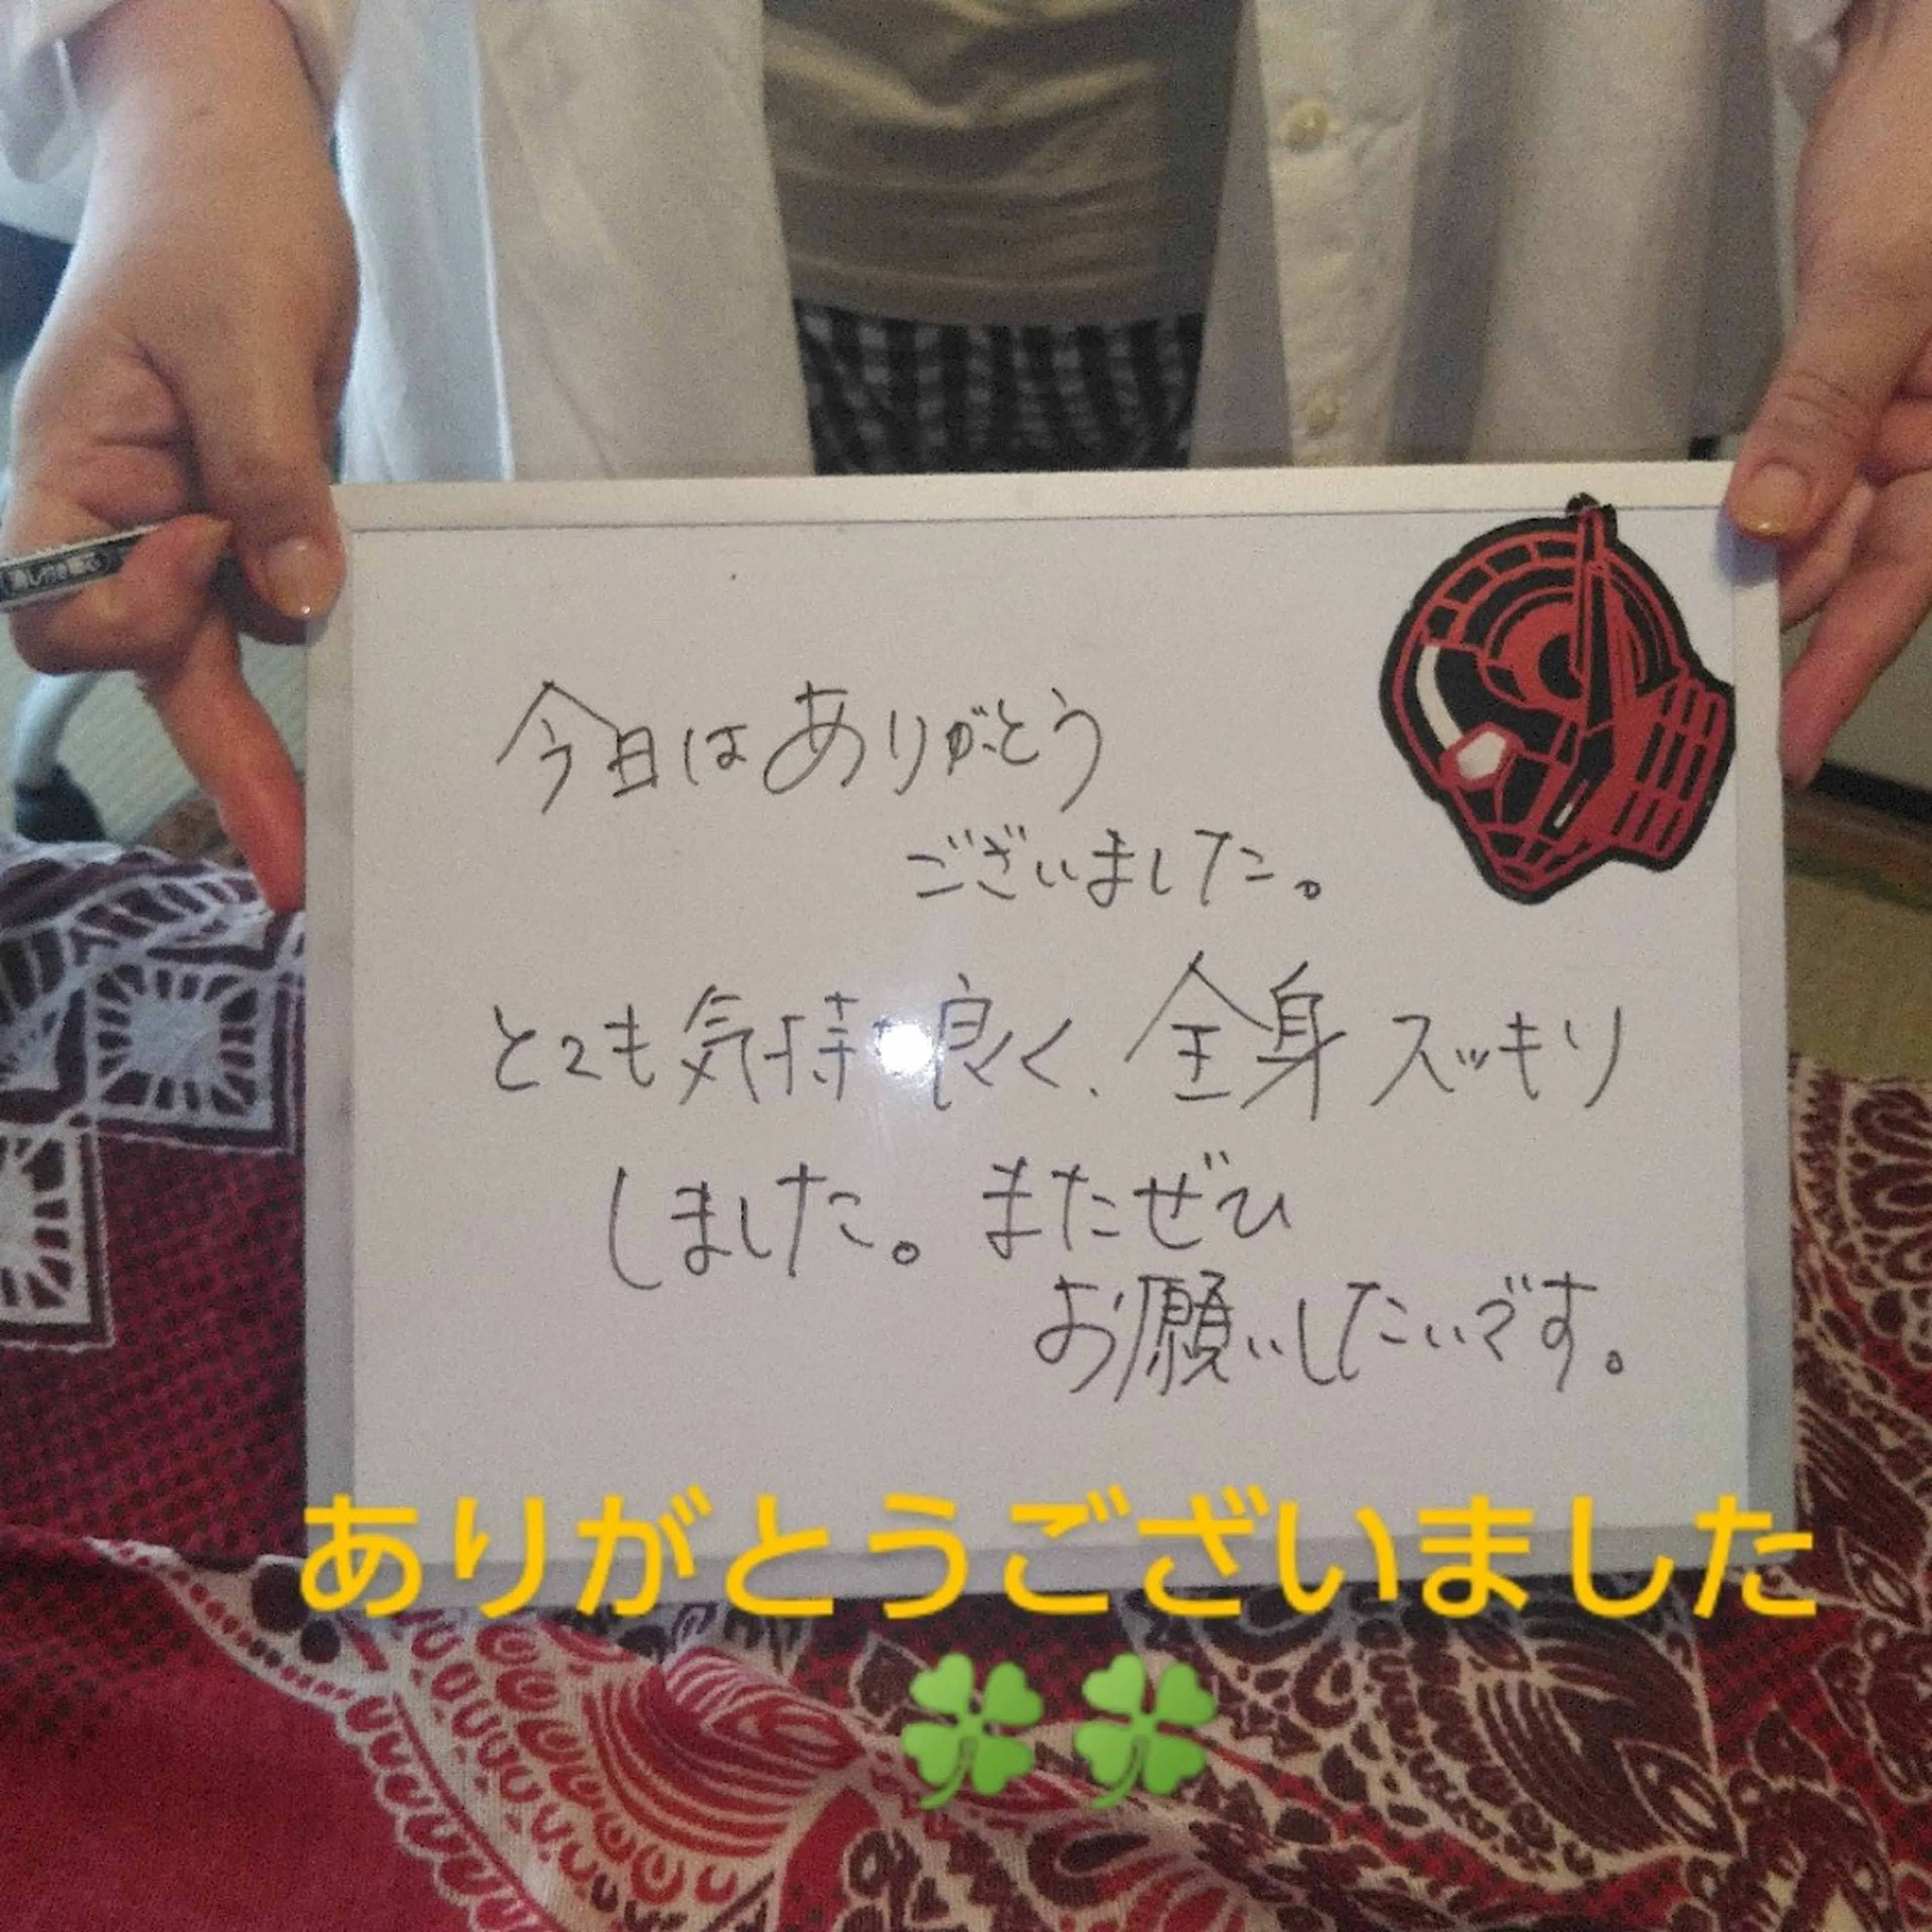 今日はありがとう
ございました。
とても気持 良く、全身スッキリ
しました。またぜひ
お願いしたいです。
ありがとうございました
🍀🍀